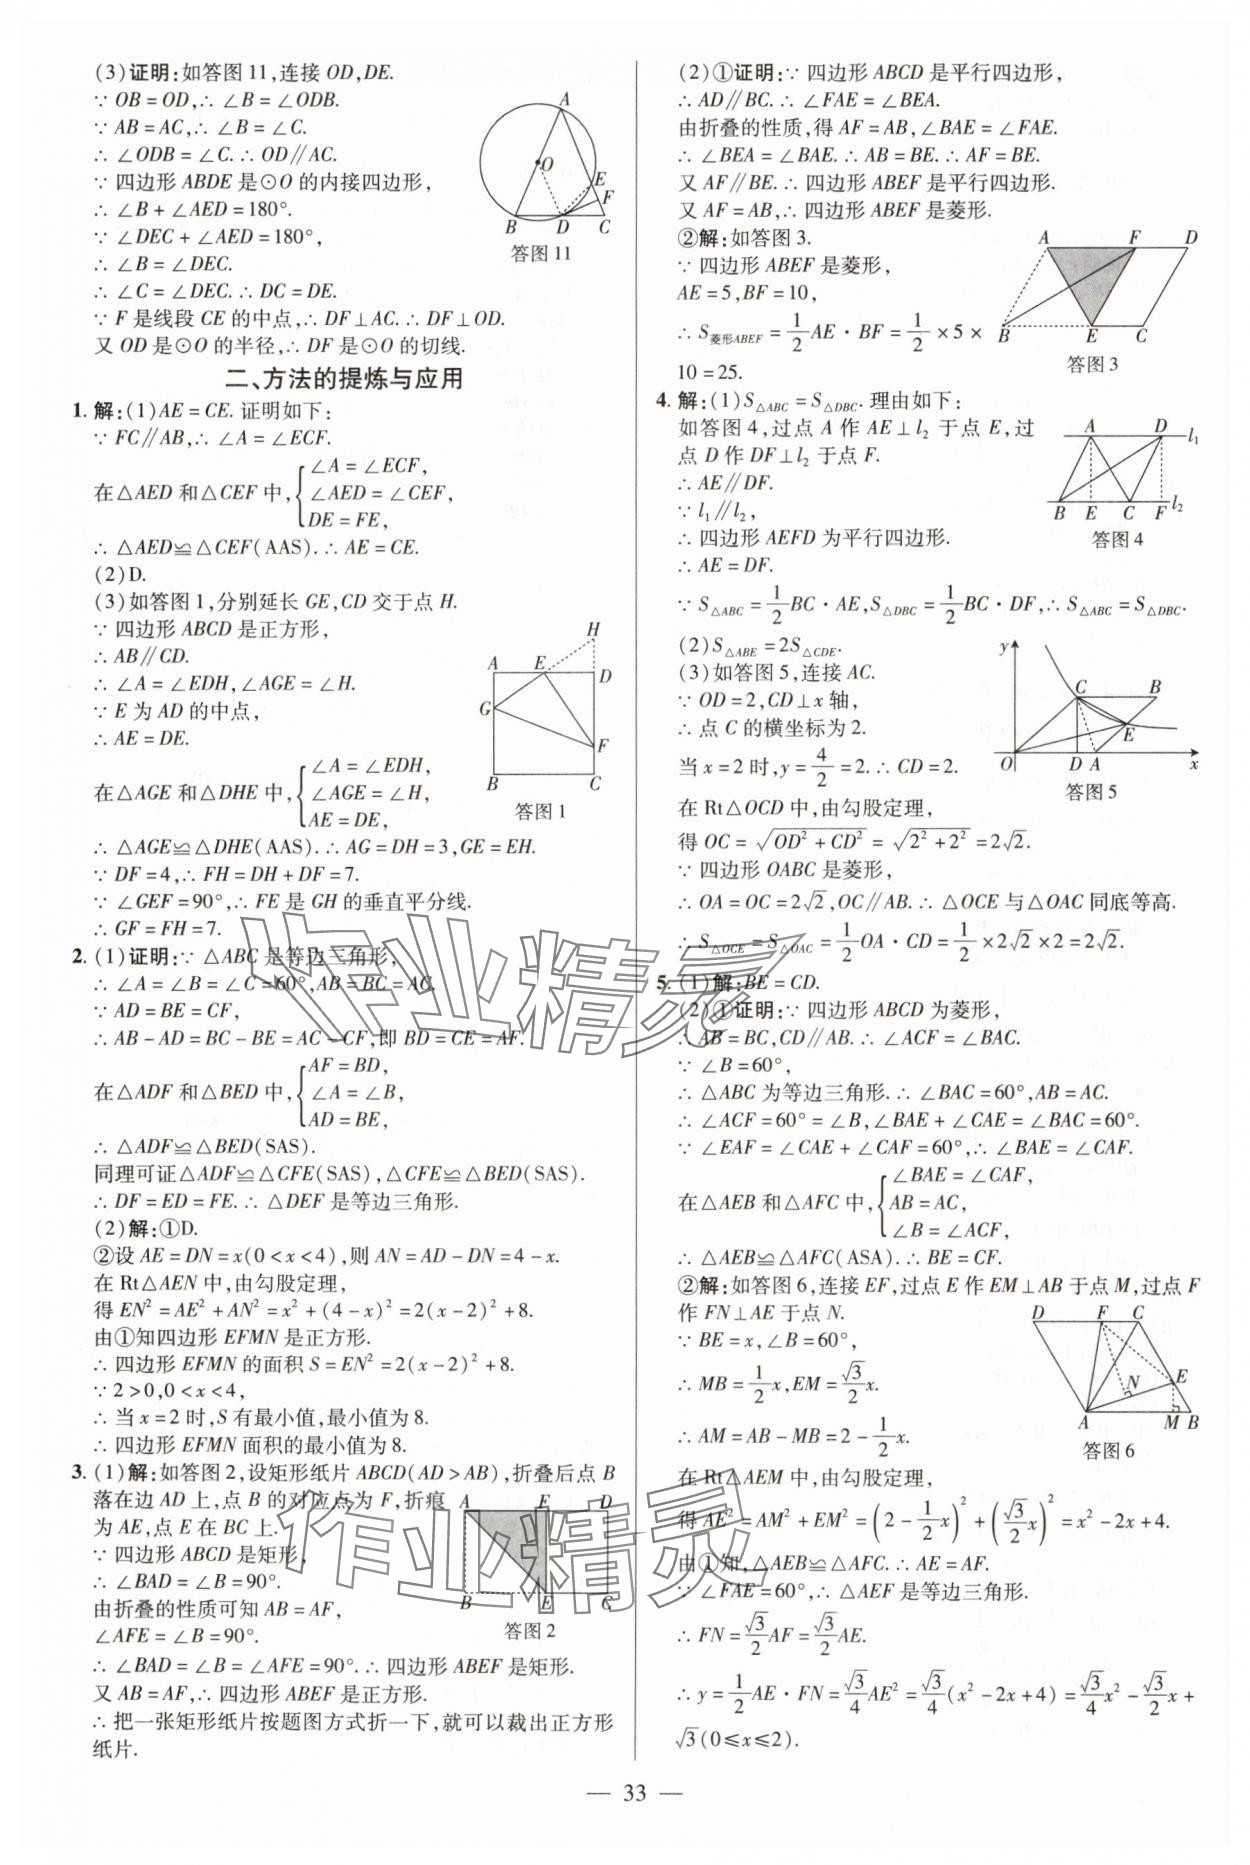 (3)证明:如答图11,连接OD,DE.
∵OB=OD,∴∠B=∠ODB.
∵AB=AC,∴∠B=∠C.
∴∠ODB=∠C.∴OD∥AC.
∵四边形ABDE是⊙O的内接四边形,
∴∠B+∠AED=180°.
∵∠DEC+∠AED=180°,
∴∠B=∠DEC.
∴∠C=∠DEC.∴DC=DE.
∵F是线段CE的中点,∴DF⊥AC.∴DF⊥OD.
又OD是⊙O的半径,∴DF是⊙O的切线.
A
O
E
F
B D C
答图11
二、方法的提炼与应用
1.解:(1)AE=CE.证明如下:
∵FC∥AB,∴∠A=∠ECF.
在△AED和△CEF中,{∠A=∠ECF,
∠AED=∠CEF,
DE=FE,
∴△AED≌△CEF(AAS).∴AE=CE.
(2)D.
(3)如答图1,分别延长GE,CD交于点H.
∵四边形ABCD是正方形,
∴AB∥CD.
∴∠A=∠EDH,∠AGE=∠H.
∵E为AD的中点,
∴AE=DE.
在△AGE和△DHE中,{∠A=∠EDH,
∠AGE=∠H,
AE=DE,
∴△AGE≌△DHE(AAS).∴AG=DH=3,GE=EH.
∵DF=4,∴FH=DH+DF=7.
∵∠GEF=90°,∴FE是GH的垂直平分线.
∴GF=FH=7.
H
A E D
G
F
B C
答图1
2.(1)证明:∵△ABC是等边三角形,
∴∠A=∠B=∠C=60°,AB=BC=AC.
∵AD=BE=CF,
∴AB-AD=BC-BE=AC-CF,即BD=CE=AF.
在△ADF和△BED中,{AF=BD,
∠A=∠B,
AD=BE,
∴△ADF≌△BED(SAS).
同理可证△ADF≌△CFE(SAS),△CFE≌△BED(SAS).
∴DF=ED=FE.∴△DEF是等边三角形.
(2)解:①D.
②设AE=DN=x(0<x<4),则AN=AD-DN=4-x.
在Rt△AEN中,由勾股定理,
得EN²=AE²+AN²=x²+(4-x)²=2(x-2)²+8.
由①知四边形EFMN是正方形.
∴四边形EFMN的面积S=EN²=2(x-2)²+8.
∵2>0,0<x<4,
∴当x=2时,S有最小值,最小值为8.
∴四边形EFMN面积的最小值为8.
3.(1)解:如答图2,设矩形纸片ABCD(AD>AB),折叠后点B
落在边AD上,点B的对应点为F,折痕
为AE,点E在BC上.
∵四边形ABCD是矩形,
∴∠BAD=∠B=90°.
由折叠的性质可知AB=AF,
∠AFE=∠B=90°.
∴∠BAD=∠B=∠AFE=90°.∴四边形ABEF是矩形.
又AB=AF,∴四边形ABEF是正方形.
∴把一张矩形纸片按题图方式折一下,就可以裁出正方形
纸片.
A F D
B E C
答图2
(2)①证明:∵四边形ABCD是平行四边形,
∴AD∥BC.∴∠FAE=∠BEA.
由折叠的性质,得AF=AB,∠BAE=∠FAE.
∴∠BEA=∠BAE.∴AB=BE.∴AF=BE.
又AF∥BE.∴四边形ABEF是平行四边形.
又AF=AB,∴四边形ABEF是菱形.
②解:如答图3.
∵四边形ABEF是菱形,
AE=5,BF=10,
∴S菱形ABEF=1/2AE·BF=1/2×5×
10=25.
A F D
B E C
答图3
4.解:(1)S△ABC=S△DBC.理由如下:
如答图4,过点A作AE⊥l₂于点E,过
点D作DF⊥l₂于点F.
∴AE∥DF.
∵l₁∥l₂,
∴四边形AEFD为平行四边形.
∴AE=DF.
∵S△ABC=1/2BC·AE,S△DBC=1/2BC·DF,∴S△ABC=S△DBC.
A D l₁
B E C F l₂
答图4
(2)S△ABE=2S△CDE.
(3)如答图5,连接AC.
∵OD=2,CD⊥x轴,
∴点C的横坐标为2.
当x=2时,y=4/2=2.∴CD=2.
在Rt△OCD中,由勾股定理,
得OC=√(OD²+CD²)=√(2²+2²)=2√2.
∵四边形OABC是菱形,
∴OA=OC=2√2,OC∥AB.∴△OCE与△OAC同底等高.
∴S△OCE=S△OAC=1/2OA·CD=1/2×2√2×2=2√2.
y
C B
E
O D A x
答图5
5.(1)解:BE=CD.
(2)①证明:∵四边形ABCD为菱形,
∴AB=BC,CD∥AB.∴∠ACF=∠BAC.
∵∠B=60°,
∴△ABC为等边三角形.∴∠BAC=60°,AB=AC.
∴∠ACF=60°=∠B,∠BAE+∠CAE=∠BAC=60°.
∵∠EAF=∠CAE+∠CAF=60°,∴∠BAE=∠CAF.
在△AEB和△AFC中,{∠BAE=∠CAF,
AB=AC,
∠B=∠ACF,
∴△AEB≌△AFC(ASA).∴BE=CF.
②解:如答图6,连接EF,过点E作EM⊥AB于点M,过点F
作FN⊥AE于点N.
∵BE=x,∠B=60°,
∴MB=1/2x,EM=√3/2x.
∴AM=AB-MB=2-1/2x.
在Rt△AEM中,由勾股定理,
得AE²=AM²+EM²=(2-1/2x)²+(√3/2x)²=x²-2x+4.
由①知,△AEB≌△AFC.∴AE=AF.
∵∠FAE=60°,∴△AEF是等边三角形.
∴FN=√3/2AF=√3/2AE.
∴y=1/2AE·FN=√3/4AE²=√3/4(x²-2x+4)=√3/4x²-√3/2x+
√3(0≤x≤2).
D F C
N E
A M B
答图6
作业精灵
作业精灵
— 33 —